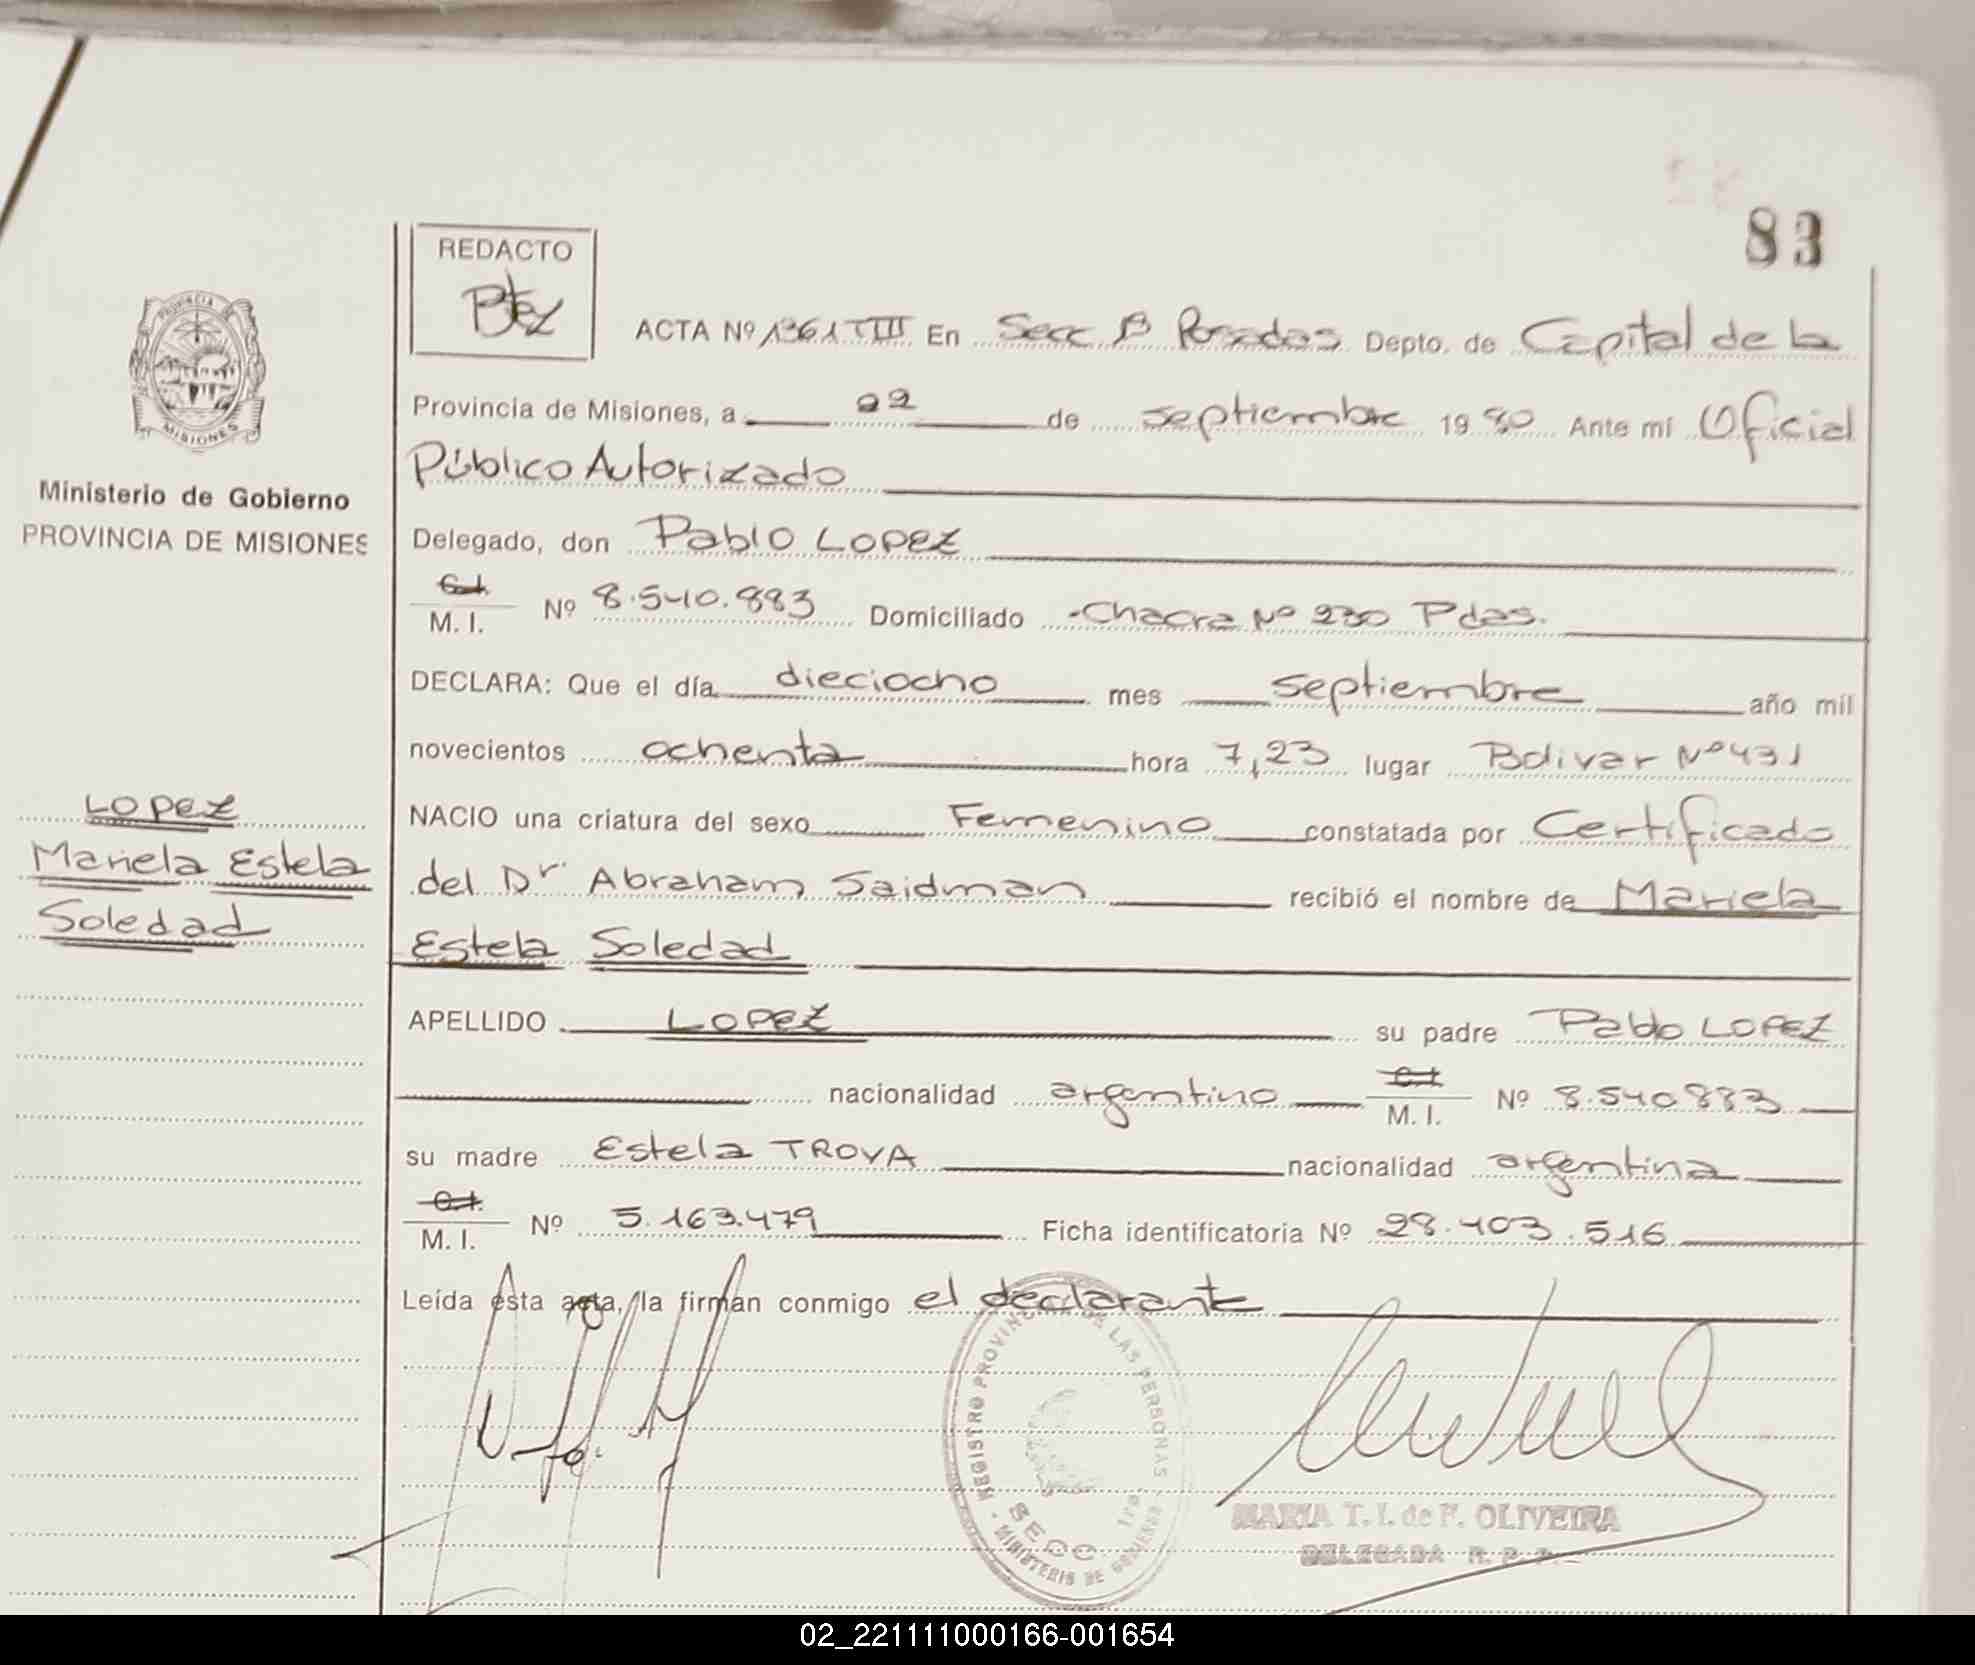 83
REDACTO
Btez
PROVINCIA DE
MISIONES
ACTA Nº 1361 TIII En Secc. B Posadas Depto. de Capital de la
Provincia de Misiones, a 22 de septiembre 1980 Ante mí Oficial
Público Autorizado
Ministerio de Gobierno
PROVINCIA DE MISIONES
Delegado, don Pablo LOPEZ
C.I.
M. I. Nº 8.540.883 Domiciliado Chacra Nº 230 Pdas.
DECLARA: Que el día dieciocho mes septiembre año mil
novecientos ochenta hora 7,23 lugar Bolivar Nº 431
LOPEZ
Mariela Estela
Soledad
NACIO una criatura del sexo Femenino constatada por Certificado
del Dr Abraham Saidman recibió el nombre de Mariela
Estela Soledad
APELLIDO LOPEZ su padre Pablo LOPEZ
nacionalidad argentino C.I. M. I. Nº 8.540883
su madre Estela TROVA nacionalidad argentina
C.I.
M. I. Nº 5.163.479 Ficha identificatoria Nº 28.403.516
Leída ésta acta, la firman conmigo el declarante
REGISTRO PROVINCIAL DE LAS PERSONAS
SECC. 1ra.
MINISTERIO DE GOBIERNO
MARIA T. I. de F. OLIVEIRA
DELEGADA R. P. P.
02_221111000166-001654